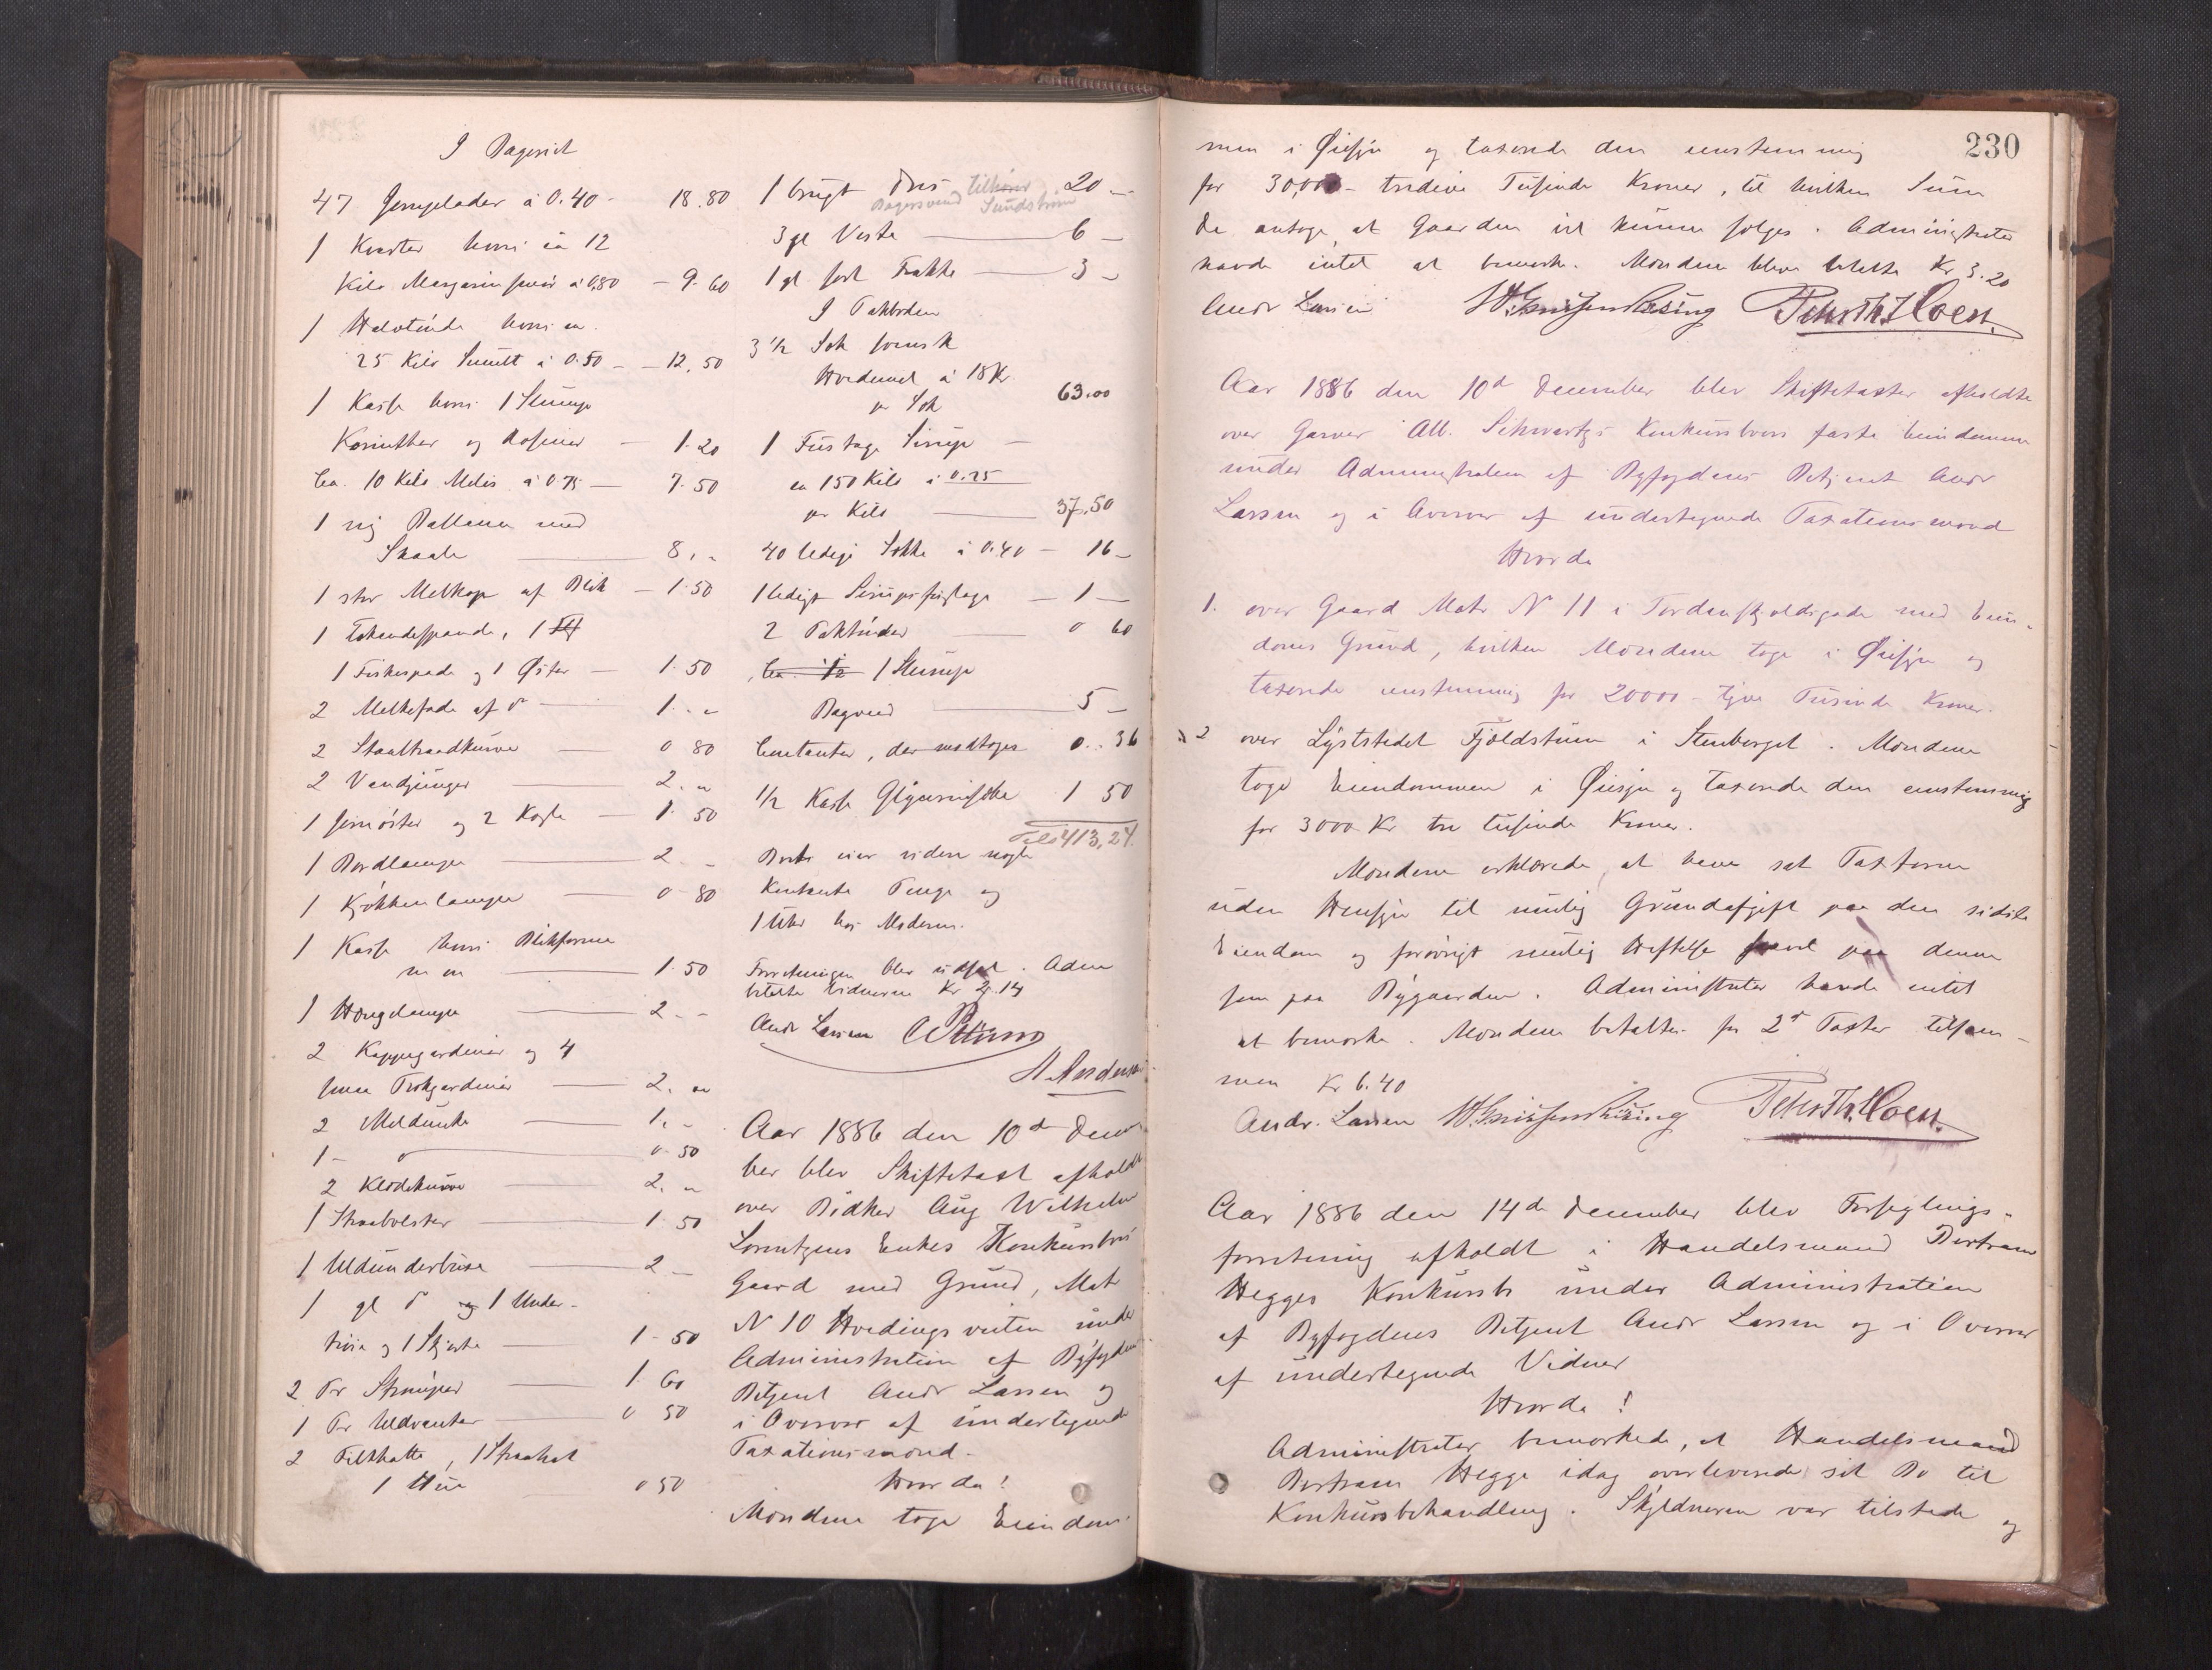 I Bageriet
47 Jernplader à 0.40 - 18.80
1 Kvarter hvori ca 12
Kilo Margarinsmør à 0,80 - 9.60
1 Halvtønde hvori ca.
25 Kilo Smult à 0.50 - 12,50
1 Kasse hvori 1 Slump
Korinther og Rosiner - 1.20
Ca. 10 Kilo Melis à 0.75 - 7.50
1 ny Ballance med
Skaale 8,-
1 stor Melkop af Blik - 1.50
1 1
1 Fiskespade og 1 Øster - 1.50
2 Melkefade af do 1.-
2 Staaltraadkurve 0 80
2 Vandjunger 2.-
1 Jernøster og 2 Kogler - 1.50
1 Bordlampe 2.-
1 Kjøkkenlampe 0-80
1 Kasse hvori Blikforme
m m 1.50
1 Hængelampe 2--
2 Kappegardiner og 4
smaa Trækgardiner 2.-
2 Meldunke 1.-
1 - do 0.50
2 Klædekurve 2.-
1 Straabolster 1.50
1 Uldunderbuxe 2-
1 gl do og 1 Under-
trøie og 1 Skjorte 1-50
2 Pr Strømper 1.60
1 Pr Uldvanter 0 50
2 Filthatte, 1 Straahat
1 Hue 0 50
1 brugt tilhører 20-
Bagersvend Sundstrøm
3 gl Veste 6-
1 gl sort Frakke 3-
I Pakboden
3 1/2 Sæk svensk
Hvedemel à 18 Kr.
pr Sæk 63.00
1 Fustage Sirup -
ca 150 Kilo à 0.25
pr Kilo 37.50
40 ledige Sække à 0.40 - 16-
1 ledigt Sirupsfustage - 1-
2 Baktruer 0 60
Ca. 1/2 1 Slump
Bagved 5-
Contanter, der modtoges 0.36
1/2 Kasse 1 50
Tils 413,24.
Boets eier videre nogle
Kontante Penge og
1 Uhr hos Moderen.
Forretningen blev udsat. Adm
betalte Vidnerne Kr 2.14
Andr Larsen
A. Andersen
Aar 1886 den 10de Decem
ber blev Skiftetaxt afholdt
over Bødker Aug Wilhelm
Lorentzens Enkes Konkursbos
Gaard med Grund, Mat
No 10 Hvedingsveiten under
Administration af Byfogdens
Betjent Andr Larsen og
i Overvær af undertegnede
Taxationsmænd.
Hvorda!
Mændene toge Eiendom-
230
men i Øiesyn og taxerede den eenstemmig
for 30,000 - tredive Tusinde Kroner, til hvilken Sum
de antoge, at Gaarden vil kunne sælges. Administrator
havde intet at bemærke. Mændene bleve betalte Kr 3.20
Andr Larsen
Aar 1886 den 10de December blev Skiftetaxter afholdte
over Garver Alb. Schwartz's Konkursbos faste Eiendomme
under Administration af Byfogdens Betjent Andr
Larsen og i Overvær af undertegnede Taxationsmænd
Hvorda
1. over Gaard Matr No 11 i Tordenskjoldsgade med Eien-
doms Grund, hvilken Mændene toge i Øiesyn og
taxerede eenstemmig for 20000 - tyve Tusinde Kroner.
2 over Lyststedet Fjældstuen i Stenberget. Mændene
toge Eiendommen i Øiesyn og taxerede den eenstemmig
for 3000 Kr tre tusinde Kroner.
Mændene erklærede, at have sat Taxterne
uden Hensyn til mulig Grundafgift paa den sidste
Eiendom og forøvrigt mulig Heftelse saavel paa denne
som paa Bygaarden. Administrator havde intet
at bemærke. Mændene betaltes for 2de Taxter tilsam-
men Kr 6.40
Andr. Larsen
Aar 1886 den 14de December blev Forseglings-
forretning afholdt i Handelsmand Bertram
Hegges Konkursbo under Administration
af Byfogdens Betjent Andr Larsen og i Overvær
af undertegnede Vidner
Hvorda!
Administrator bemærkede, at Handelsmand
Bertram Hegge idag overleverede sit Bo til
Konkursbehandling. Skyldneren var tilstede og